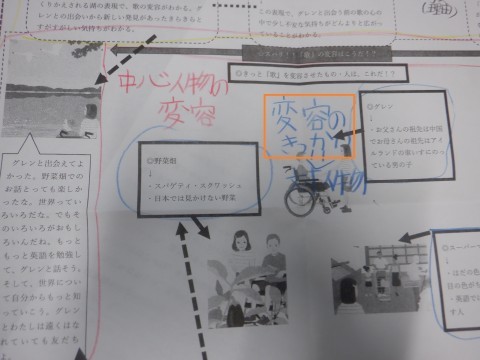 くりかえされる湖の表現で、歌の変容がわかる。グレンとの出会いから新しい発見があったきらきらとすがすがしい気持ちがわかる。
グレンと出会う前の歌の心の中で少し不安な気持ちがどんよりと広がっていることがわかる。
(理由)
◎きっと「歌」を変容させたもの・人は、これだ!?
中心人物の
変容
変容の
きっかけ
対人物
◎グレン
↓
・お父さんの祖先は中国
でお母さんの祖先はアイ
ルランドの車いすにのっ
ている男の子
◎野菜畑
↓
・スパゲティ・スクワッシュ
・日本では見かけない野菜
グレンと出会えてよ
かった。野菜畑での
お話とっても楽しか
ったなぁ。世界ってい
ろいろだな。でもそ
のいろいろがおもし
ろいんだね。もっと
もっと英語を勉強し
て、グレンと話そう。
そして、世界につい
て自分からもっと知
っていこう。グレン
とわたしは遠くはな
れていても友だち
◎スーパーマ
↓
・はだの色
目の色がち
・英語で
す人